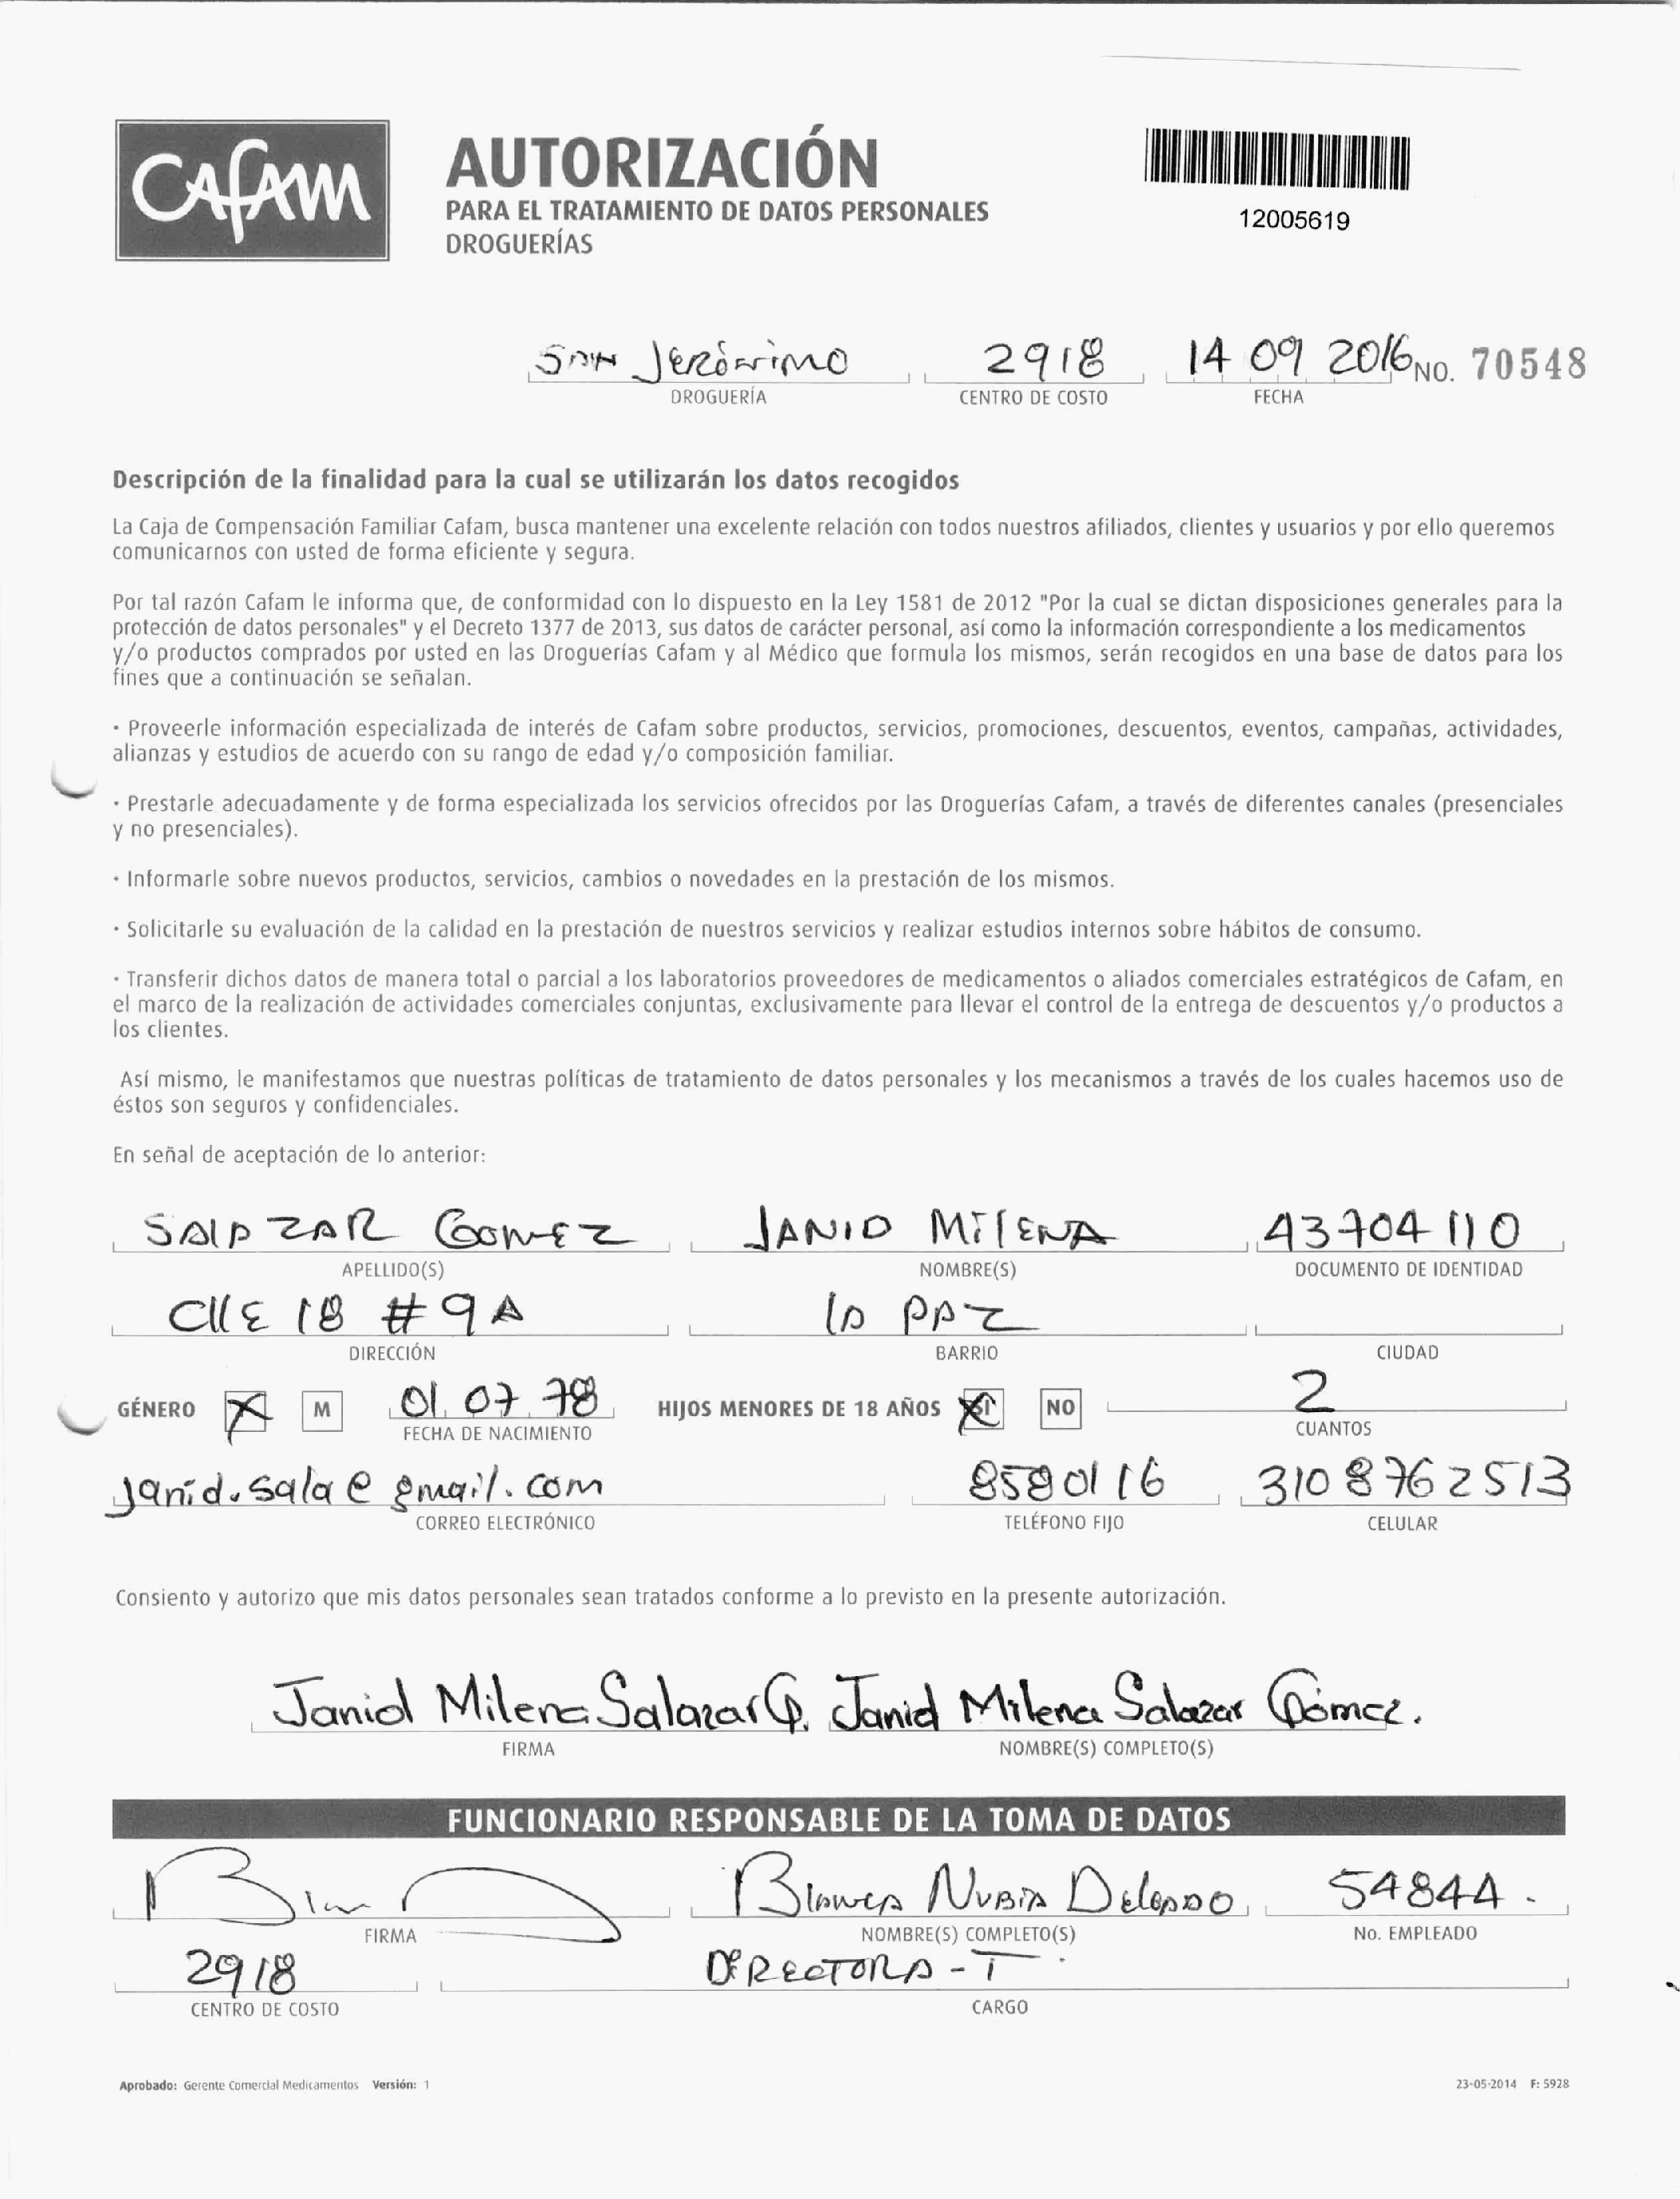 CAFAM
AUTORIZACIÓN
PARA EL TRATAMIENTO DE DATOS PERSONALES
DROGUERÍAS
12005619
SAN JERÓNIMO 2918 14 09 2016 NO. 70548
DROGUERÍA CENTRO DE COSTO FECHA
Descripción de la finalidad para la cual se utilizarán los datos recogidos
La Caja de Compensación Familiar Cafam, busca mantener una excelente relación con todos nuestros afiliados, clientes y usuarios y por ello queremos
comunicarnos con usted de forma eficiente y segura.
Por tal razón Cafam le informa que, de conformidad con lo dispuesto en la Ley 1581 de 2012 "Por la cual se dictan disposiciones generales para la
protección de datos personales" y el Decreto 1377 de 2013, sus datos de carácter personal, así como la información correspondiente a los medicamentos
y/o productos comprados por usted en las Droguerías Cafam y al Médico que formula los mismos, serán recogidos en una base de datos para los
fines que a continuación se señalan.
· Proveerle información especializada de interés de Cafam sobre productos, servicios, promociones, descuentos, eventos, campañas, actividades,
alianzas y estudios de acuerdo con su rango de edad y/o composición familiar.
· Prestarle adecuadamente y de forma especializada los servicios ofrecidos por las Droguerías Cafam, a través de diferentes canales (presenciales
y no presenciales).
· Informarle sobre nuevos productos, servicios, cambios o novedades en la prestación de los mismos.
· Solicitarle su evaluación de la calidad en la prestación de nuestros servicios y realizar estudios internos sobre hábitos de consumo.
· Transferir dichos datos de manera total o parcial a los laboratorios proveedores de medicamentos o aliados comerciales estratégicos de Cafam, en
el marco de la realización de actividades comerciales conjuntas, exclusivamente para llevar el control de la entrega de descuentos y/o productos a
los clientes.
Así mismo, le manifestamos que nuestras políticas de tratamiento de datos personales y los mecanismos a través de los cuales hacemos uso de
éstos son seguros y confidenciales.
En señal de aceptación de lo anterior:
SALAZAR GOMEZ JANID MILENA 43704110
APELLIDO(S) NOMBRE(S) DOCUMENTO DE IDENTIDAD
CllE 18 # 9A la PAZ
DIRECCIÓN BARRIO CIUDAD
GÉNERO M 01 07 78 HIJOS MENORES DE 18 AÑOS SI NO 2
FECHA DE NACIMIENTO CUANTOS
janid.sala@gmail.com 8580116 310 8762513
CORREO ELECTRÓNICO TELÉFONO FIJO CELULAR
Consiento y autorizo que mis datos personales sean tratados conforme a lo previsto en la presente autorización.
Janid Milena Salazar G. Janid Milena Salazar Gómez.
FIRMA NOMBRE(S) COMPLETO(S)
FUNCIONARIO RESPONSABLE DE LA TOMA DE DATOS
Blanca Nubia Delgado 54844.
FIRMA NOMBRE(S) COMPLETO(S) No. EMPLEADO
2918 DIRECTORA - T
CENTRO DE COSTO CARGO
Aprobado: Gerente Comercial Medicamentos Versión: 1 23-05-2014 F: 5928